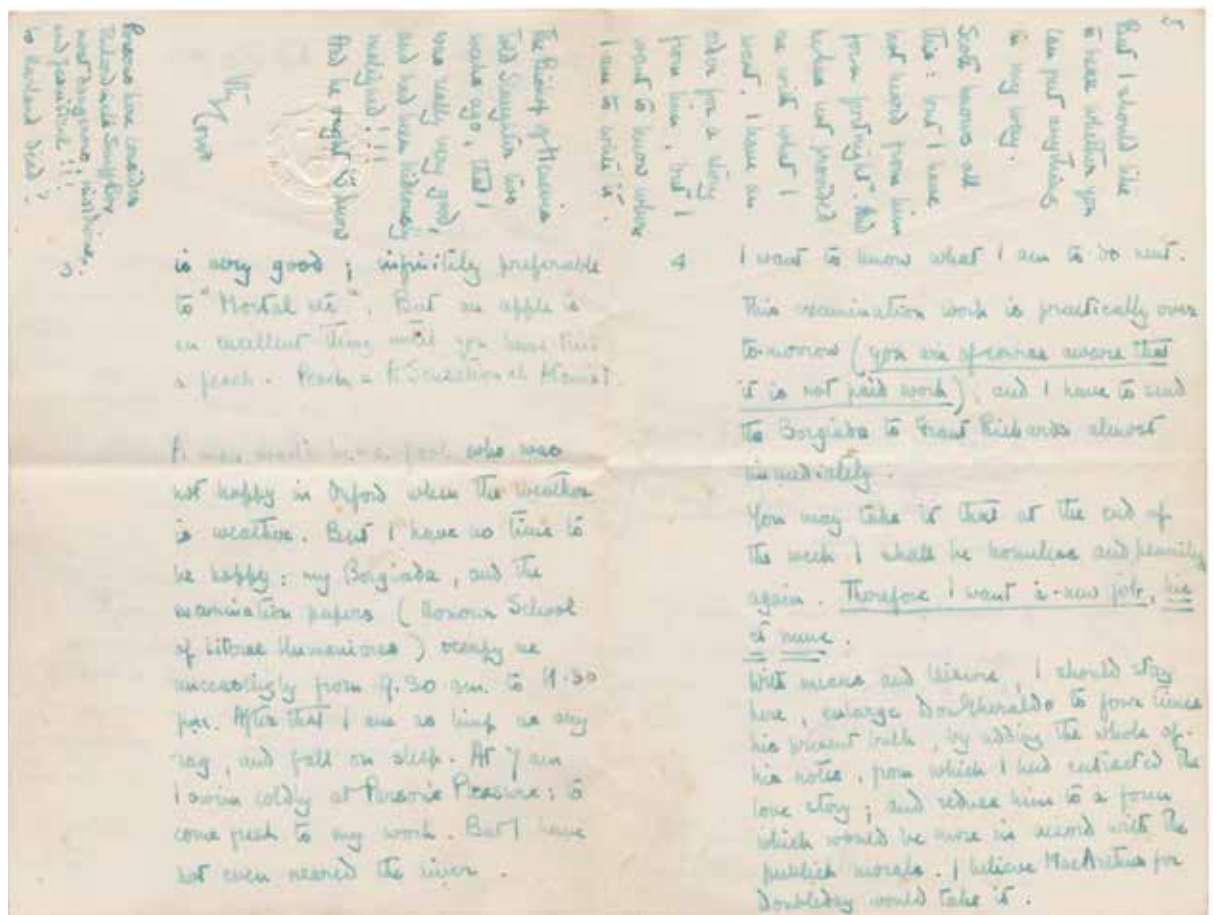 3.
is very good ; infinitely preferable
to "Mortal etc". But an apple is
an excellent thing until you have tried
a peach. Peach =
A man would be a fool who was
not happy in Oxford when the weather
is weather. But I have no time to
be happy : my Borgiada, and the
examination papers (Honour School
of Literae Humaniores) occupy me
unceasingly from 9.30 am. to 11.30
pm. After that I am as limp as any
rag, and fall on sleep. At 7 am
I swim coldly at Parson's Pleasure : to
come fresh to my work. But I have
not even neared the river.
4
I want to know what I am to do next.
This examination work is practically over
to-morrow (you are of course aware that
it is not paid work), and I have to send
the Borgiada to Grant Richards almost
immediately.
You may take it that at the end of
the week I shall be homeless and penniless
again. Therefore I want a new job,
With means and leisure, I should stay
here, enlarge Don Gheraldo to four times
his present bulk, by adding the whole of
his notes, from which I had extracted the
love story ; and reduce him to a form
which would be more in accord with the
publick morals. I believe MacArthur for
Doubleday would take it.
5
But I should like
to hear whether you
can put anything
in my way.
Scott knows all
this : but I have
not heard from him
for a fortnight. And
me with what I
want. I have an
order for a story
from him, but I
want to know where
I am to write it.
The Bishop of Menevia
told Slaughter two
weeks ago, that I
was really very good,
and had been hideously
maligned!!!
And he ought to know
Corvo
Parsons here consider
most dangerous, insidious,
and !!!